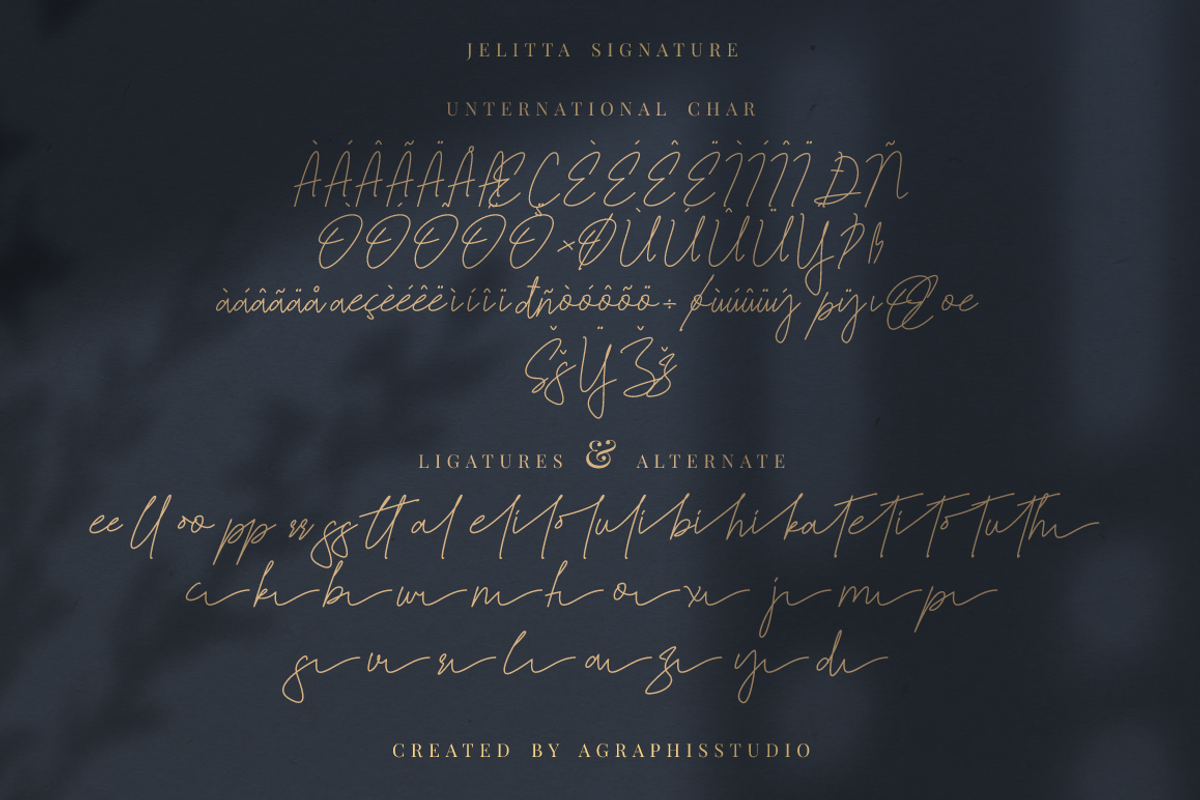 JELITTA SIGNATURE
UNTERNATIONAL CHAR
ÀÁÂÃÄÅÆÇÈÉÊËÌÍÎÏÐÑ
ÒÓÔÕÖ×ØÙÚÛÜÝÞß
àáâãäåæçèéêëìíîïđñòóôõö÷øùúûüýþÿıŒœ
ŠšŸŽž
LIGATURES & ALTERNATE
ee ll oo pp rr ss tt al el il ol ul li bi hi ka te ti to tu th
c k b w n t o x j m p
g v r l a z y d
CREATED BY AGRAPHISSTUDIO